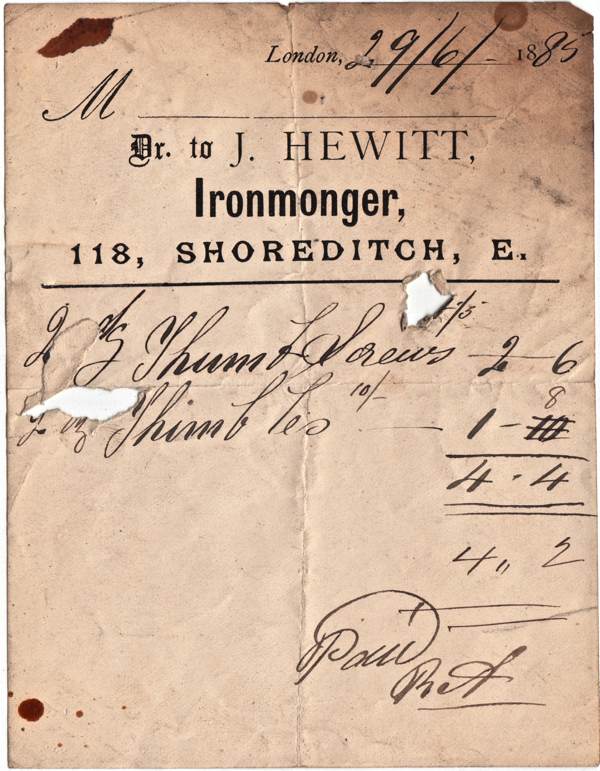 London, 29/6/- 1885
M
Dr. to J. HEWITT,
Ironmonger,
118, SHOREDITCH, E.
2 Thumb Screws /5 2 - 6
2 Thimbles 10/- — 1 - 8
4 - 4
4 " 2
Paid